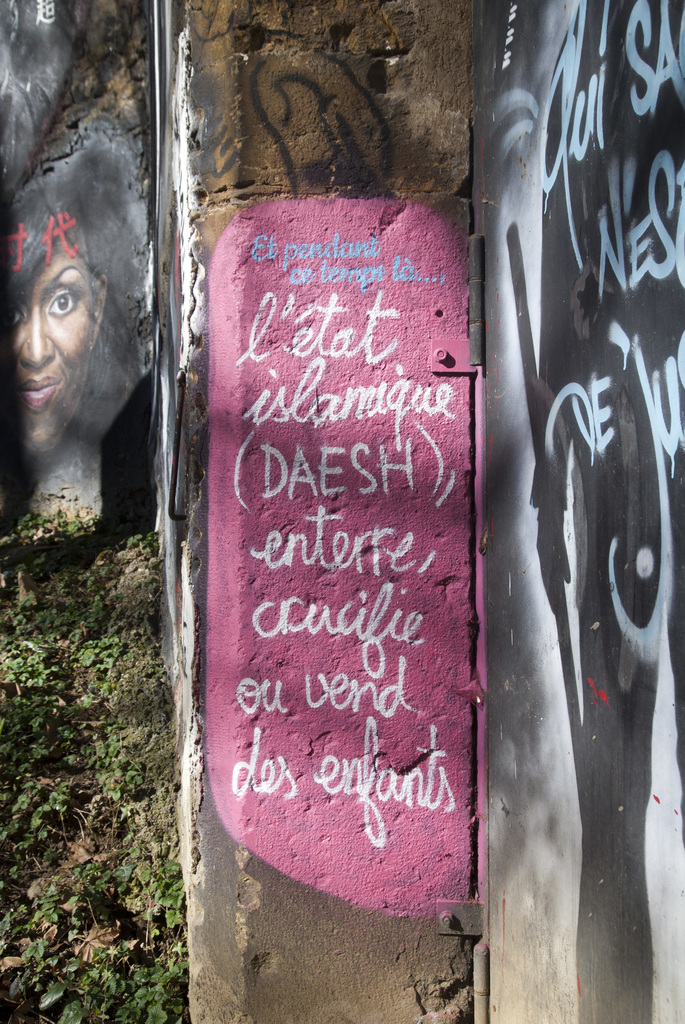 超
时代
Et pendant
ce temps là....
l'état
islamique
(DAESH),
enterre,
crucifie
ou vend
des enfants
qui
N'ES
DE